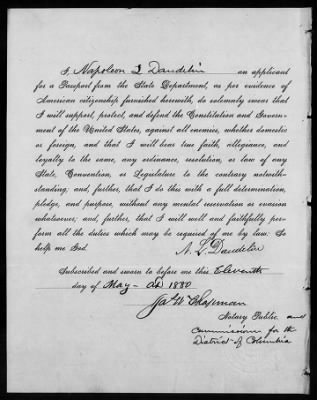 I, Napoleon L Dandelin an applicant
for a Passport from the State Department, as per evidence
of American citizenship furnished herewith, do solemnly swear that
I will support, protect, and defend the Constitution and Govern-
ment of the United States, against all enemies, whether domestic
or foreign, and that I will bear true faith, allegiance, and
loyalty to the same, any ordinance, resolution, or law of any
State, Convention, or Legislature to the contrary notwith-
standing; and, further, that I do this with a full determination,
pledge, and purpose, without any mental reservation or evasion
whatsoever; and, further, that I will well and faithfully per-
form all the duties which may be required of me by law: So
help me God.
N. L. Dandelin
Subscribed and sworn to before me this Eleventh
day of May - AD 1880
Jas W Chapman
Notary Public and
Commissioner for the
District of Columbia